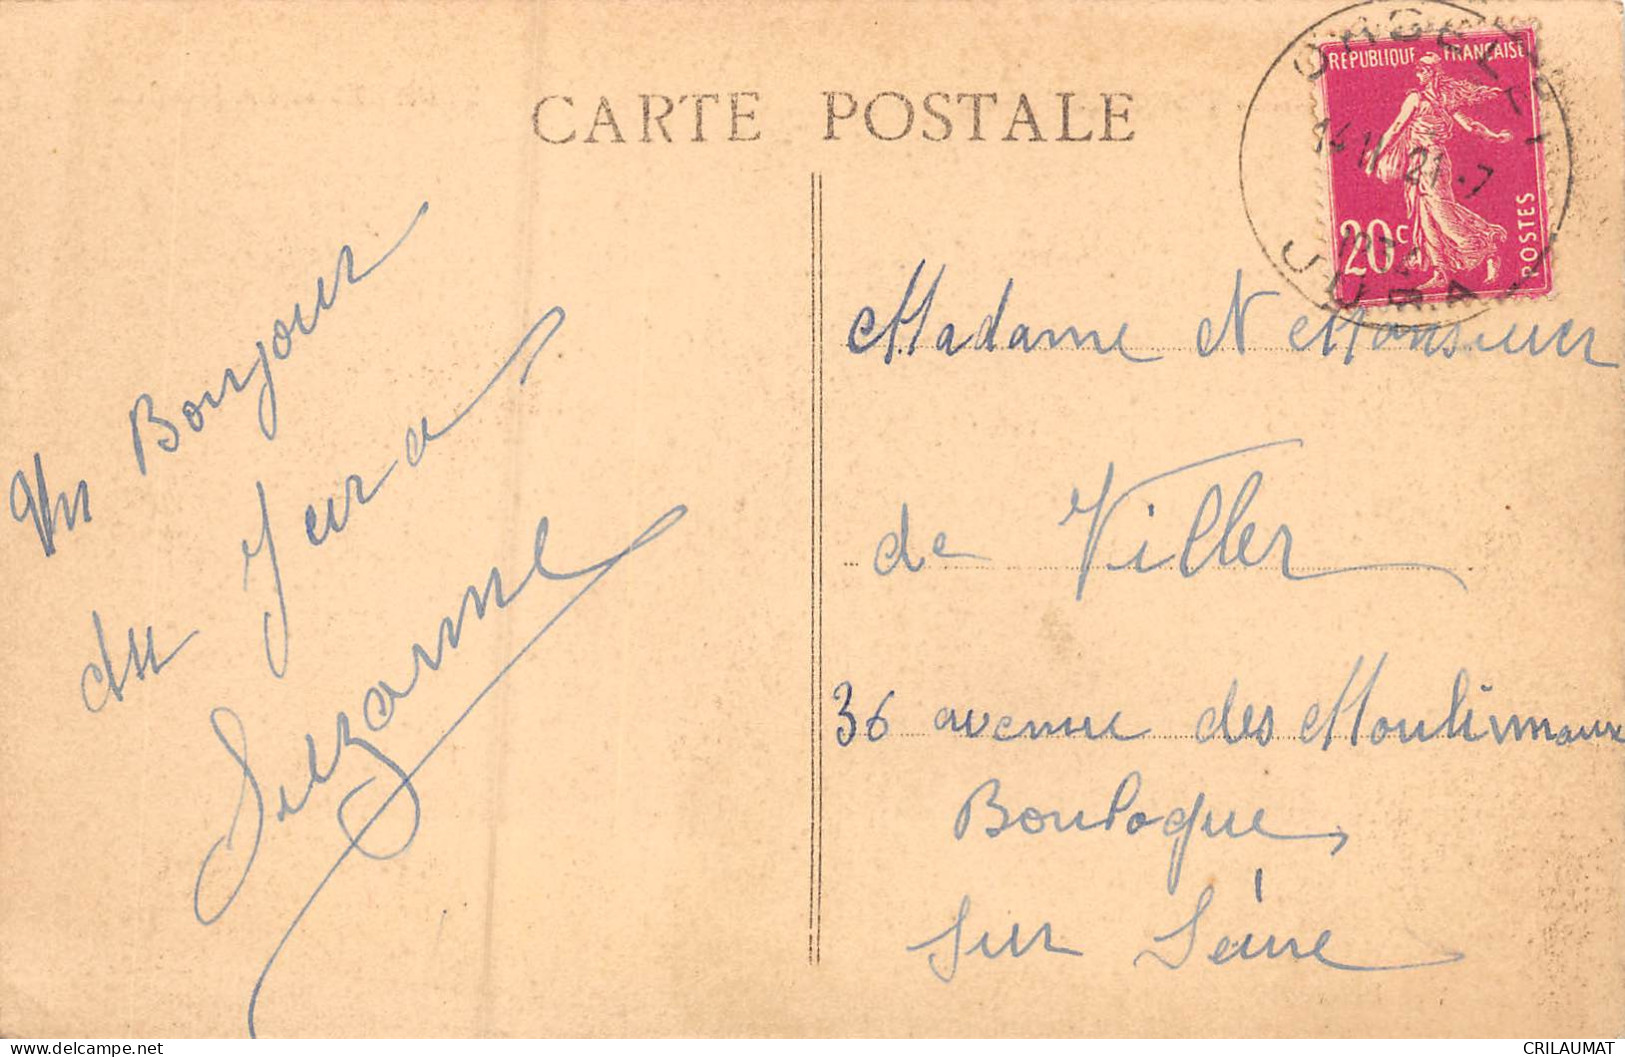 CARTE POSTALE
RÉPUBLIQUE FRANÇAISE
20c
POSTES
ORGELET
14 H 21.7
JURA
Un Bonjour
du Jura
Suzanne
Madame et Monsieur
de Viller
36 avenue des Moulineaux
Boulogne
sur Seine
CRILAUMAT